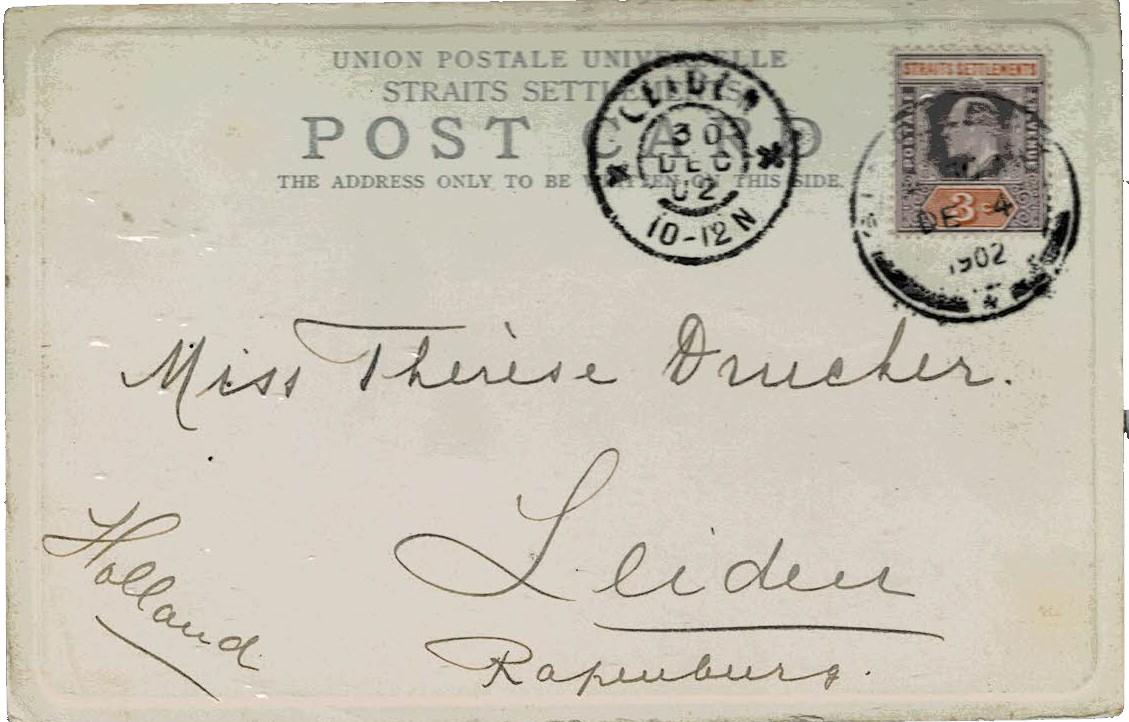 UNION POSTALE UNIVERSELLE
STRAITS SETTLEMENTS
POST CARD
THE ADDRESS ONLY TO BE WRITTEN ON THIS SIDE.
LEIDEN
30
DEC
02
10-12N
STRAITS SETTLEMENTS
POSTAGE
POSTAGE
3c
DE 4
1902
Miss Thérèse Drucker.
Leiden
Holland
Rapenburg.